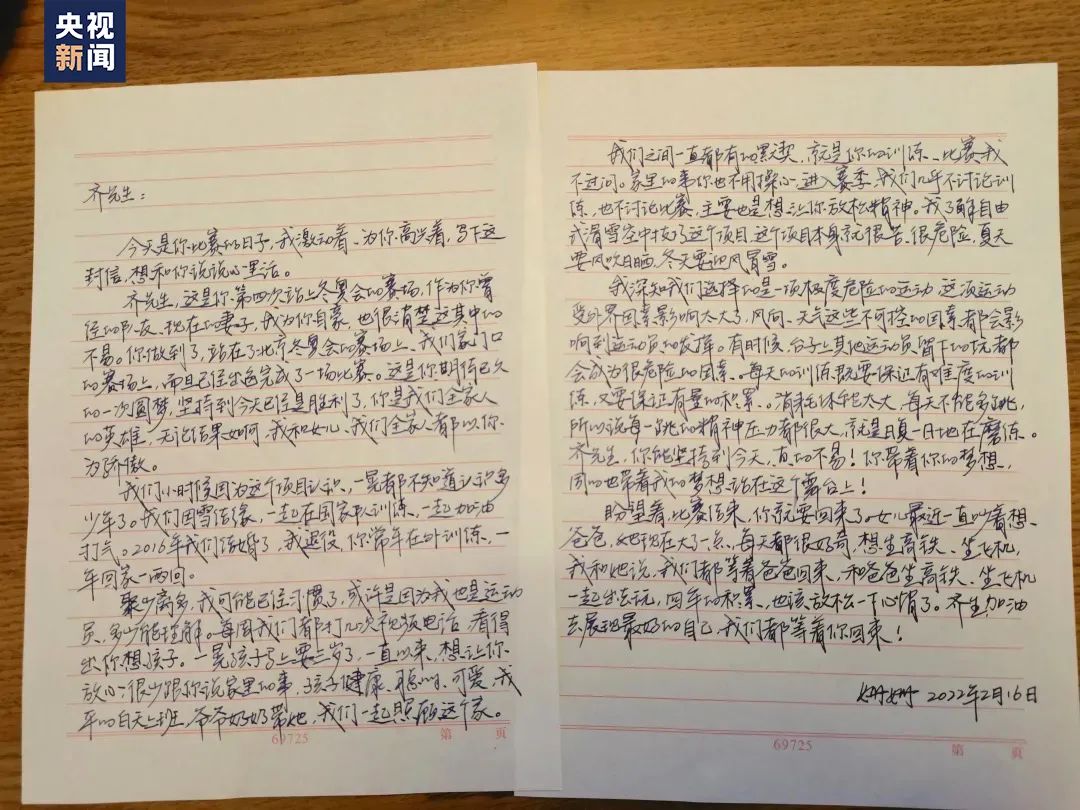 央视
新闻
齐先生:
今天是你比赛的日子,我激动着、为你高兴着,写下这
封信,想和你说说心里话。
齐先生,这是你第四次站上冬奥会的赛场,作为你曾
经的队友、现在的妻子,我为你自豪,也很清楚这其中的
不易。你做到了,站在了北京冬奥会的赛场上、我们家门口
的赛场上,而且已经出色完成了一场比赛。这是你期待已久
的一次圆梦,坚持到今天已经是胜利了,你是我们全家人
的英雄,无论结果如何,我和女儿、我们全家人都以你
为骄傲。
我们小时候因为这个项目认识,一晃都不知道认识多
少年了。我们因雪结缘,一起在国家队训练、一起加油
打气。2016年我们结婚了,我退役,你常年在外训练,一
年回家一两回。
聚少离多,我可能已经习惯了,或许是因为我也是运动
员,多少能理解。每周我们都打几次视频电话,看得
出你想孩子。一晃孩子马上要三岁了,一直以来,想让你
放心,很少跟你说家里的事,孩子健康、聪明、可爱,我
平时白天上班,爷爷奶奶带她,我们一起照顾这个家。
69725
第 页
我们之间一直都有的默契,就是你的训练、比赛我
不过问。家里的事你也不用操心,进入赛季,我们几乎不讨论训
练,也不讨论比赛,主要也是想让你放松精神。我了解自由
式滑雪空中技巧这个项目,这个项目本身就很苦、很危险,夏天
要风吹日晒,冬天要迎风冒雪。
我深知我们选择的是一项极度危险的运动,这项运动
受外界因素影响太大了,风向、天气这些不可控的因素都会影
响到运动员的发挥。有时候,台子上其他运动员留下的坑都
会成为很危险的因素。每天的训练既要保证有难度的训
练,又要保证有量的积累。消耗体能太大,每天不能多跳,
所以说每一跳的精神压力都很大,就是日复一日地在磨练。
齐先生,你能坚持到今天,真的不易!你带着你的梦想,
同时也带着我的梦想站在这个舞台上!
盼望着,比赛结束,你就要回来了。女儿最近一直吵着想
爸爸,她现在大了一点,每天都很好奇,想坐高铁、坐飞机,
我和她说,我们都等着爸爸回来,和爸爸坐高铁、坐飞机
一起出去玩,四年的积累,也该放松一下心情了。齐先生,加油
去展现最好的自己,我们都等着你回来!
姗姗 2022年2月16日
69725
第 页